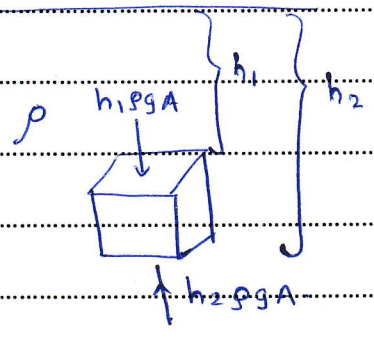 h₁
h₂
h₁ρgA
ρ
h₂ρgA